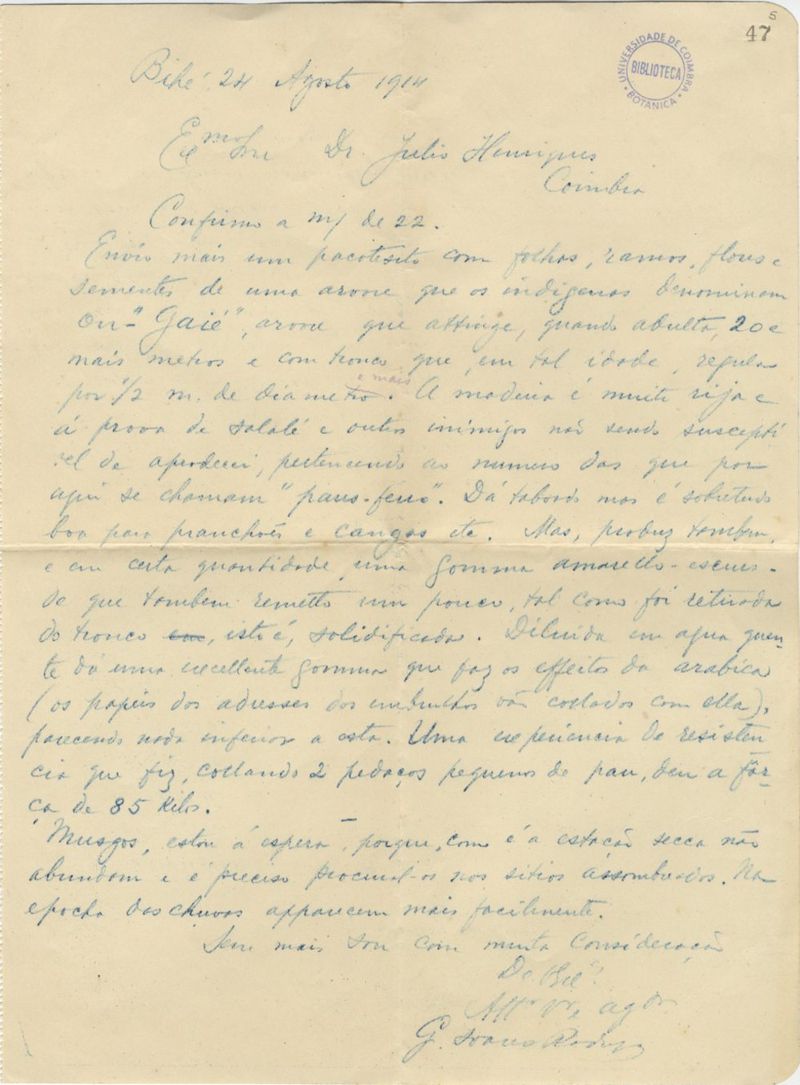 5
47
UNIVERSIDADE DE COIMBRA
BIBLIOTECA
BOTANICA
Bihé 24 Agosto 1914
Exmo Snr Dr. Julio Henriques
Coimbra
Confirmo a m/ de 22.
Envio mais um pacotesito com folhas, ramos, flores e
sementes de uma arvore que os indigenas denominam
On-"Gaié", arvore que attinge, quando adulta, 20 e
mais metros e com tronco que, em tal idade, regula
por 1/2 m. de diametro e mais. A madeira é muito rija e
á prova de salalé e outros inimigos não sendo suscepti-
vel de apodrecer, pertencendo ao numero das que por
aqui se chamam "paus-ferro". Dá taboado mas é sobretudo
boa para pranchões e cangas etc. Mas, produz tambem,
e em certa quantidade, uma gomma amarello-escura
de que tambem remetto um pouco, tal como foi retirada
do tronco, isto é, solidificada. Diluida em agua quen-
te dá uma excellente gomma que faz os effeitos da arabica
(os papeis dos adresses dos embrulhos vão collados com ella),
parecendo nada inferior a esta. Uma experiencia de resisten-
cia que fiz, collando 2 pedaços pequenos de pau, deu a fôr-
ça de 85 kilos.
Musgos, estou á espera, porque, como é a estação secca não
abundam e é preciso procural-os nos sitios assombrados. Na
epocha das chuvas apparecem mais facilmente.
Sem mais sou com muita consideração
De V. Exª
Attº Vor e agdo
G. Soares